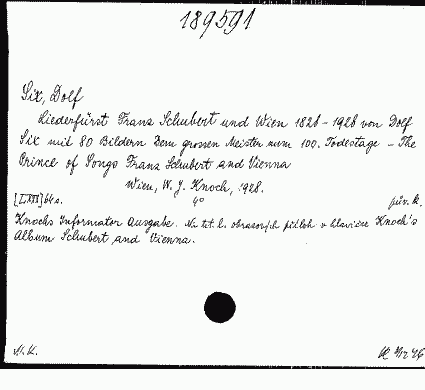 189591
Six, Dolf
Liederfürst Franz Schubert und Wien 1828-1928 von Dolf
Six mit 80 Bildern Dem grossen Meister zum 100. Todestage - The
Prince of Songs Franz Schubert and Vienna
Wien, W. J. Knoch, 1928.
[LXIII] 64 s. 4° pův. k.
Knochs Informator Ausgabe. Na tit. l. obrazových příloh v hlavičce Knoch's
Album Schubert and Vienna.
M.K.